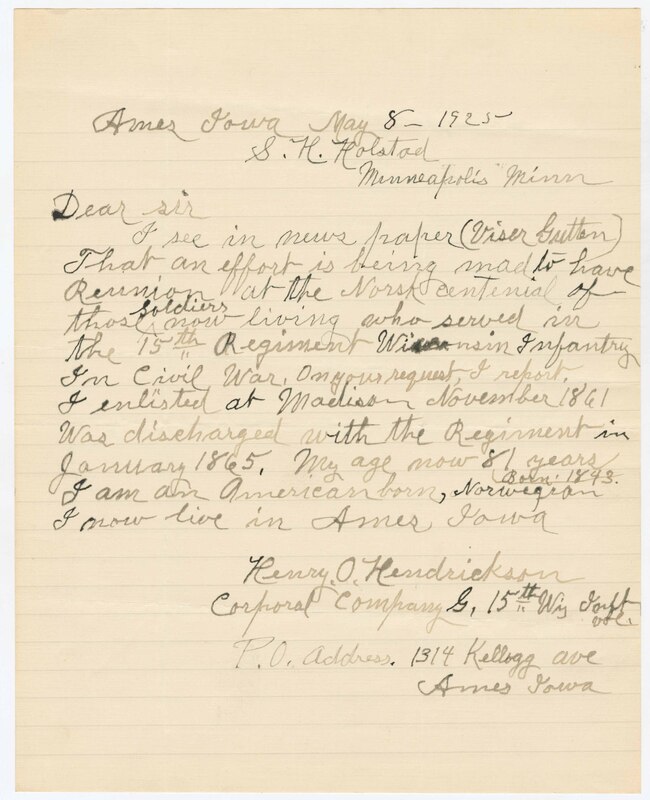 Ames Iowa May 8- 1925
S. H. Holstad
Minneapolis Minn
Dear sir
I see in news paper (Viser Gutten)
That an effort is being mad to have
Reunion at the Norsk centenial of
thos soldiers now living who served in
the 15th Regiment Wisconsin Infantry
In Civil War. On your request, I report.
I enlisted at Madison November 1861
Was discharged with the Regiment in
January 1865. My age now 81 years
(Born: 1843.
I am an American born, Norwegian
I now live in Ames Iowa
Henry O. Hendrickson
Corporal Company G, 15th Wis Inft
vol.
P.O. Address. 1314 Kellogg ave
Ames Iowa